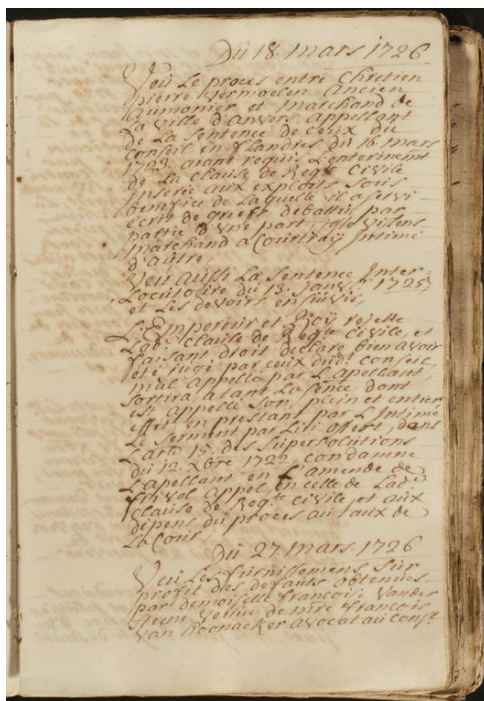 Du 18 mars 1726
Veu Le proces entre Chretien
pierre Vermoelen Ancien
Aumonier et marchand de
La ville d'anvers appellant
de La sentence de ceux du
Conseil en flandres du 16 mars
1723. aiant requis L'enterinemt
de La clause de Reqte Civile
inserée aux exploits sous
benefice de Laquelle il a servi
ecrit de griefs debattu par
partie d'une part, Vilsens
marchand a Courtray Intimé
d'autre.
Veu aussi La sentence Inter-
Locutoire du 13. janvr 1725,
et Les devoirs ensuivis,
L'Empereur et Roÿ rejette
Lade clause de Reqte Civile, et
faisant droit declare bien avoir
eté jugé par ceux dudt conseil,
mal appellé par L'apellant,
sortira atant La sence dont
est appellé son plein et entier
effet en prestant par L'Intimé
Le serment par Lui offert, dans
L'arte 15. des Supersolutions
du 12. Xbre 1722, condamne
L'apellant en L'amende de
frivol appel, en celle de Lade
clause de Reqte civile, et aux
dépens du proces au taux de
La Cour
Du 27 mars 1726
Veu Les furnissemens sur
profit des defauts obtenues
par demoiselle francoise Vander
Steene veuve de mre francois
van Hoonacker avocat au Conse.